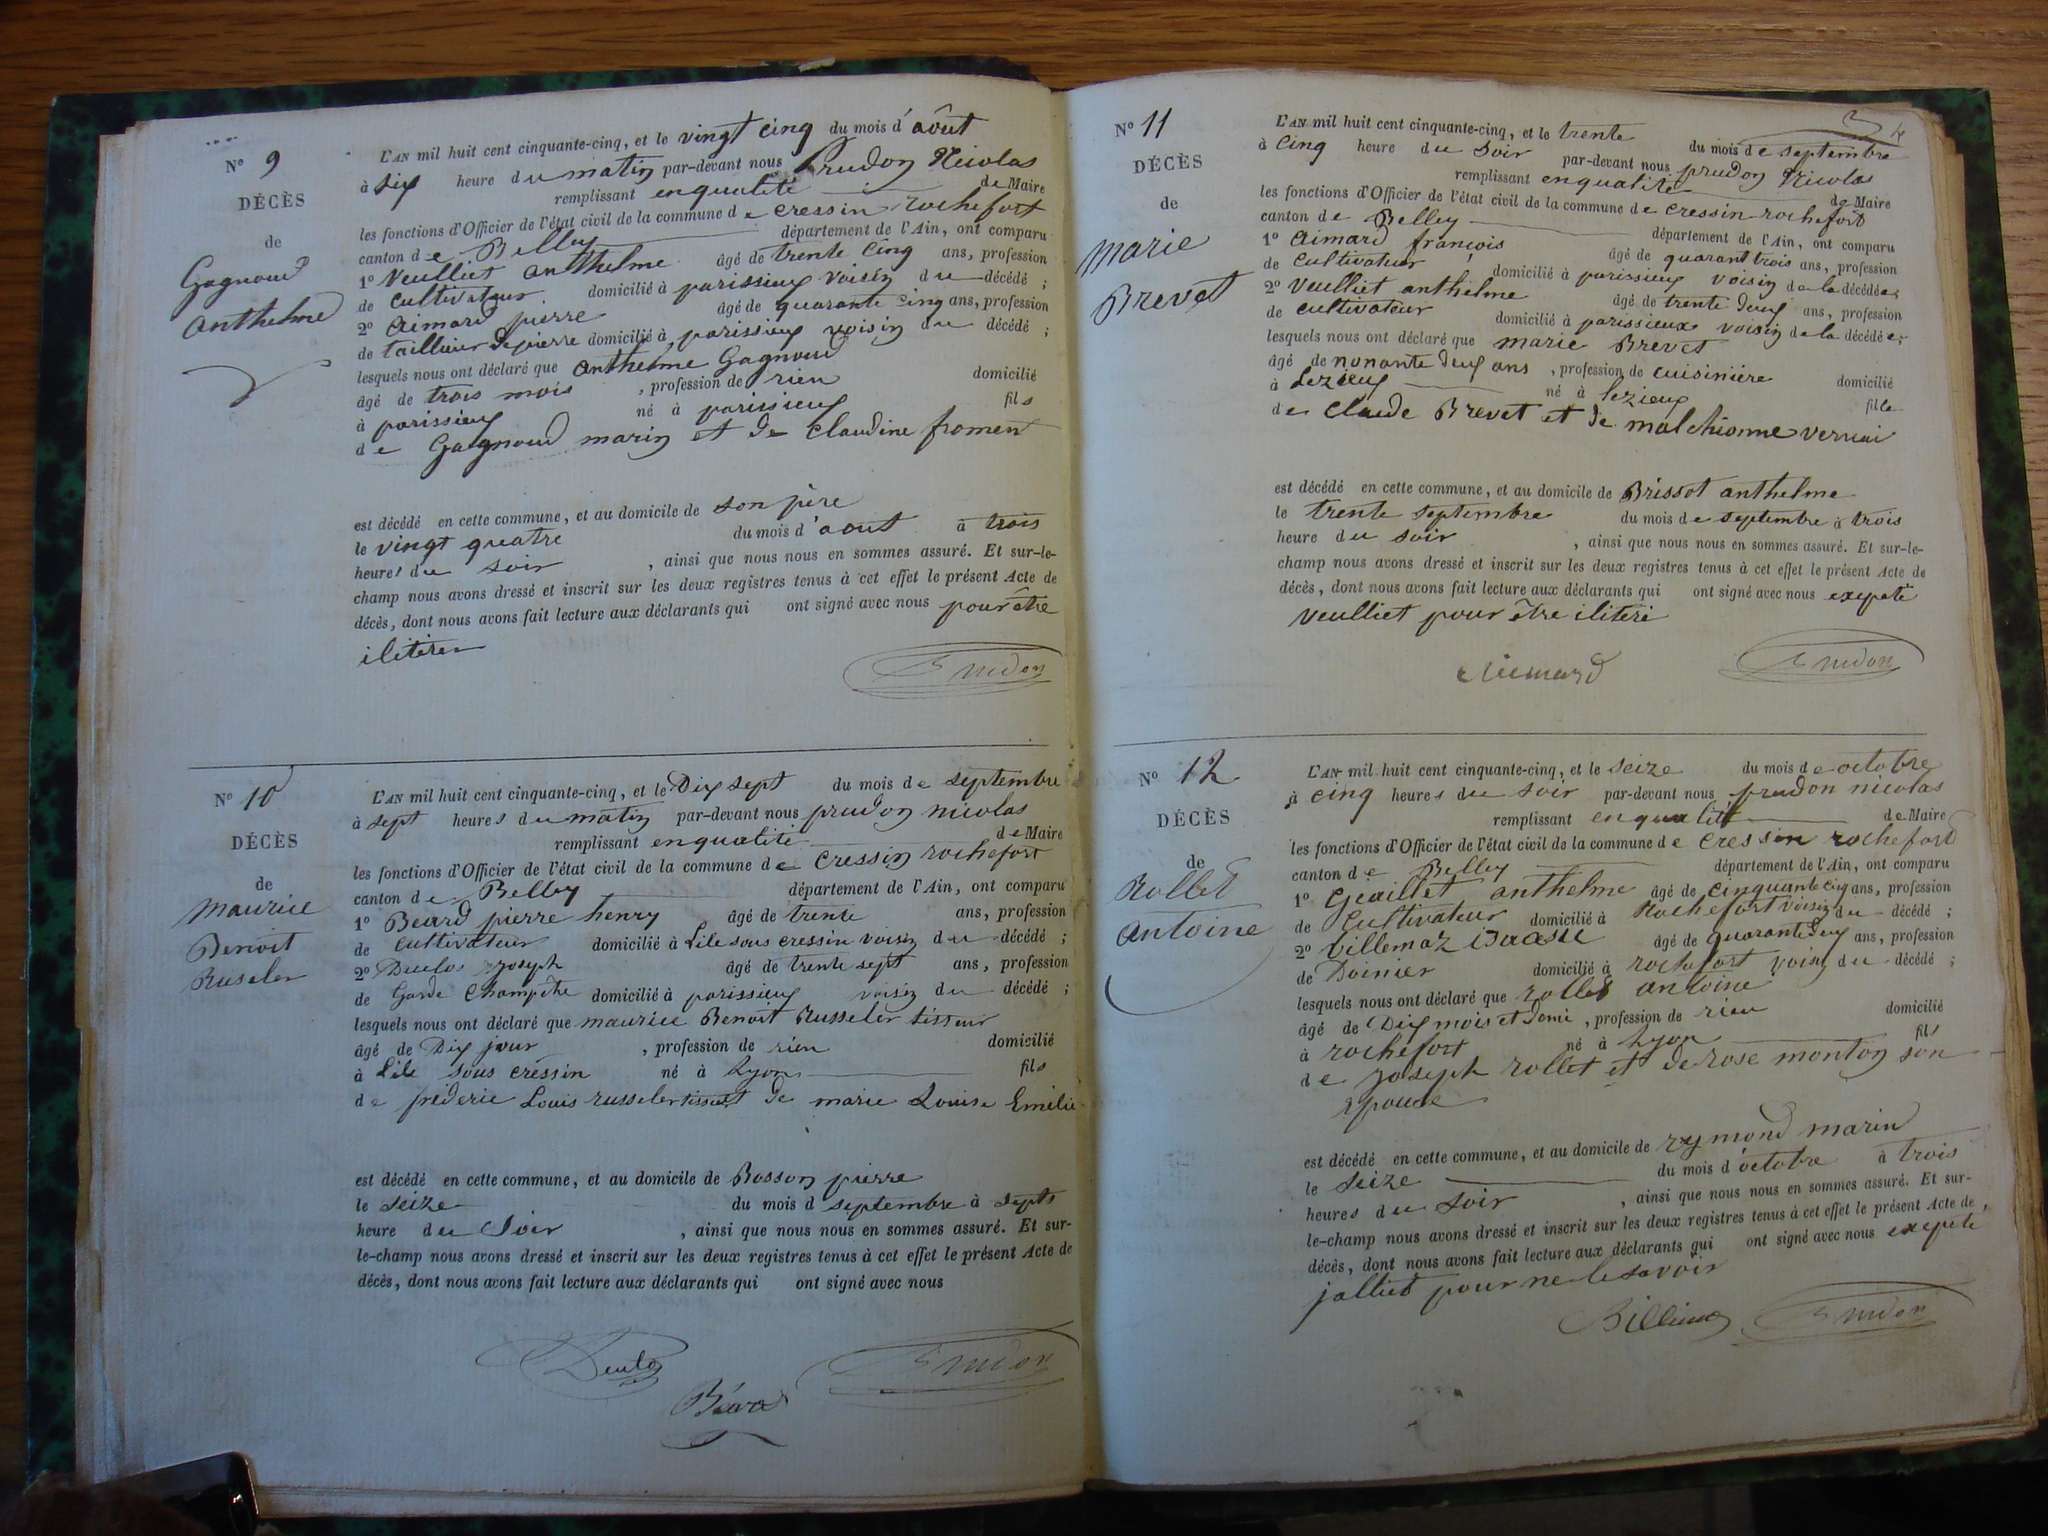 N° 9
DÉCÈS
de
Gagnoud
Anthelme
L'AN mil huit cent cinquante-cinq, et le vingt cinq du mois d'août
à six heure du matin par-devant nous Prudon Nicolas
remplissant enqualité de Maire
les fonctions d'Officier de l'état civil de la commune de cressin rochefort
canton de Belley département de l'Ain, ont comparu
1° Veulliet anthelme âgé de trente cinq ans, profession
de cultivateur domicilié à parissieux voisin du décédé ;
2° Aimard pierre âgé de quarante cinq ans, profession
de taillieur de pierre domicilié à parissieux voisin du décédé ;
lesquels nous ont déclaré que anthelme Gagnoud
âgé de trois mois , profession de rien domicilié
à parissieux né à parissieux fils
de Gagnoud marin et de claudine froment
est décédé en cette commune, et au domicile de son père
le vingt quatre du mois d'aout à trois
heures du soir , ainsi que nous nous en sommes assuré. Et sur-le-
champ nous avons dressé et inscrit sur les deux registres tenus à cet effet le présent Acte de
décès, dont nous avons fait lecture aux déclarants qui ont signé avec nous pour être
iliterer
Prudon
N° 10
DÉCÈS
de
maurice
Benoit
Ruseler
L'AN mil huit cent cinquante-cinq, et le Dix sept du mois de septembre
à sept heures du matin par-devant nous prudon nicolas
remplissant enqualité de Maire
les fonctions d'Officier de l'état civil de la commune de cressin rochefort
canton de Belley département de l'Ain, ont comparu
1° Beard pierre henry âgé de trente ans, profession
de cultivateur domicilié à Lile sous cressin voisin du décédé ;
2° joseph âgé de trente sept ans, profession
de Garde Champêtre domicilié à parissieux voisin du décédé ;
lesquels nous ont déclaré que maurice Benoit Russeler tisseur
âgé de Dix jour , profession de rien domicilié
à Lile sous cressin né à Lyon fils
de fréderic Louis russeler tisseur de marie Louise Emélie
est décédé en cette commune, et au domicile de Bosson pierre
le seize du mois d septembre à septs
heure du Soir , ainsi que nous nous en sommes assuré. Et sur-
le-champ nous avons dressé et inscrit sur les deux registres tenus à cet effet le présent Acte de
décès, dont nous avons fait lecture aux déclarants qui ont signé avec nous
Prudon
Béard
N° 11
DÉCÈS
de
Marie
Brevet
L'AN mil huit cent cinquante-cinq, et le trente du mois de septembre
à cinq heure du Soir par-devant nous prudon Nicolas
remplissant enqualité de Maire
les fonctions d'Officier de l'état civil de la commune de cressin rochefort
canton de Belley département de l'Ain, ont comparu
1° Aimard françois âgé de quarant trois ans, profession
de cultivateur domicilié à parissieux voisin de la décédée;
2° Veulliet anthelme âgé de trente deux ans, profession
de cultivateur domicilié à parissieux voisin de la décédée;
lesquels nous ont déclaré que marie Brevet
âgé de nonante deux ans , profession de cuisinière domicilié
à Lezieux né à lezieux fille
de claude Brevet et de malchionne
est décédé en cette commune, et au domicile de Brissot anthelme
le trente septembre du mois de septembre à trois
heure du soir , ainsi que nous nous en sommes assuré. Et sur-le-
champ nous avons dressé et inscrit sur les deux registres tenus à cet effet le présent Acte de
décès, dont nous avons fait lecture aux déclarants qui ont signé avec nous exepeté
Veulliet pour être iliteré
Aiemard
Prudon
N° 12
DÉCÈS
de
Rollet
Antoine
L'AN mil huit cent cinquante-cinq, et le seize du mois de octobre
à cinq heures du soir par-devant nous prudon nicolas
remplissant enqualité de Maire
les fonctions d'Officier de l'état civil de la commune de cressin rochefort
canton de Belley département de l'Ain, ont comparu
1° anthelme âgé de cinquante cinq ans, profession
de Cultivateur domicilié à Rochefort voisin du décédé ;
2° Villemaz âgé de quarante deux ans, profession
de domicilié à rochefort voisin du décédé ;
lesquels nous ont déclaré que rollet antoine
âgé de Dix mois et demi , profession de rien domicilié
à rochefort né à Lyon fils
de joseph rollet et de rose monton son
epouse
est décédé en cette commune, et au domicile de rymond marin
le seize du mois d'octobre à trois
heures du soir , ainsi que nous nous en sommes assuré. Et sur-
le-champ nous avons dressé et inscrit sur les deux registres tenus à cet effet le présent Acte de
décès, dont nous avons fait lecture aux déclarants qui ont signé avec nous exepeté
jalliet pour ne le savoir
Prudon